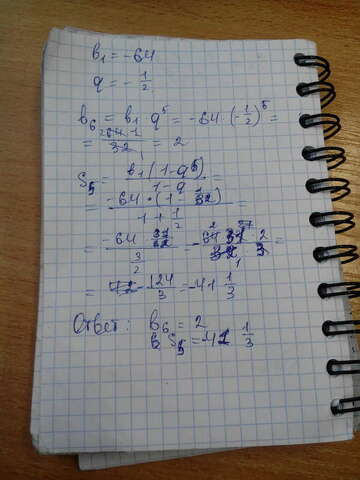 b₁ = -64
q = -1/2
b₆ = b₁ q⁵ = -64 · (-1/2)⁵ =
= 64·1/32 = 2
S₅ = b₁(1-q⁵)/1-q =
= -64·(1-1/32)/1+1/2 =
= -64·31/32 / 3/2 = - 2 31 2/3 =
= -124/3 = -41 1/3
Ответ: b₆ = 2
S₅ = -41 1/3